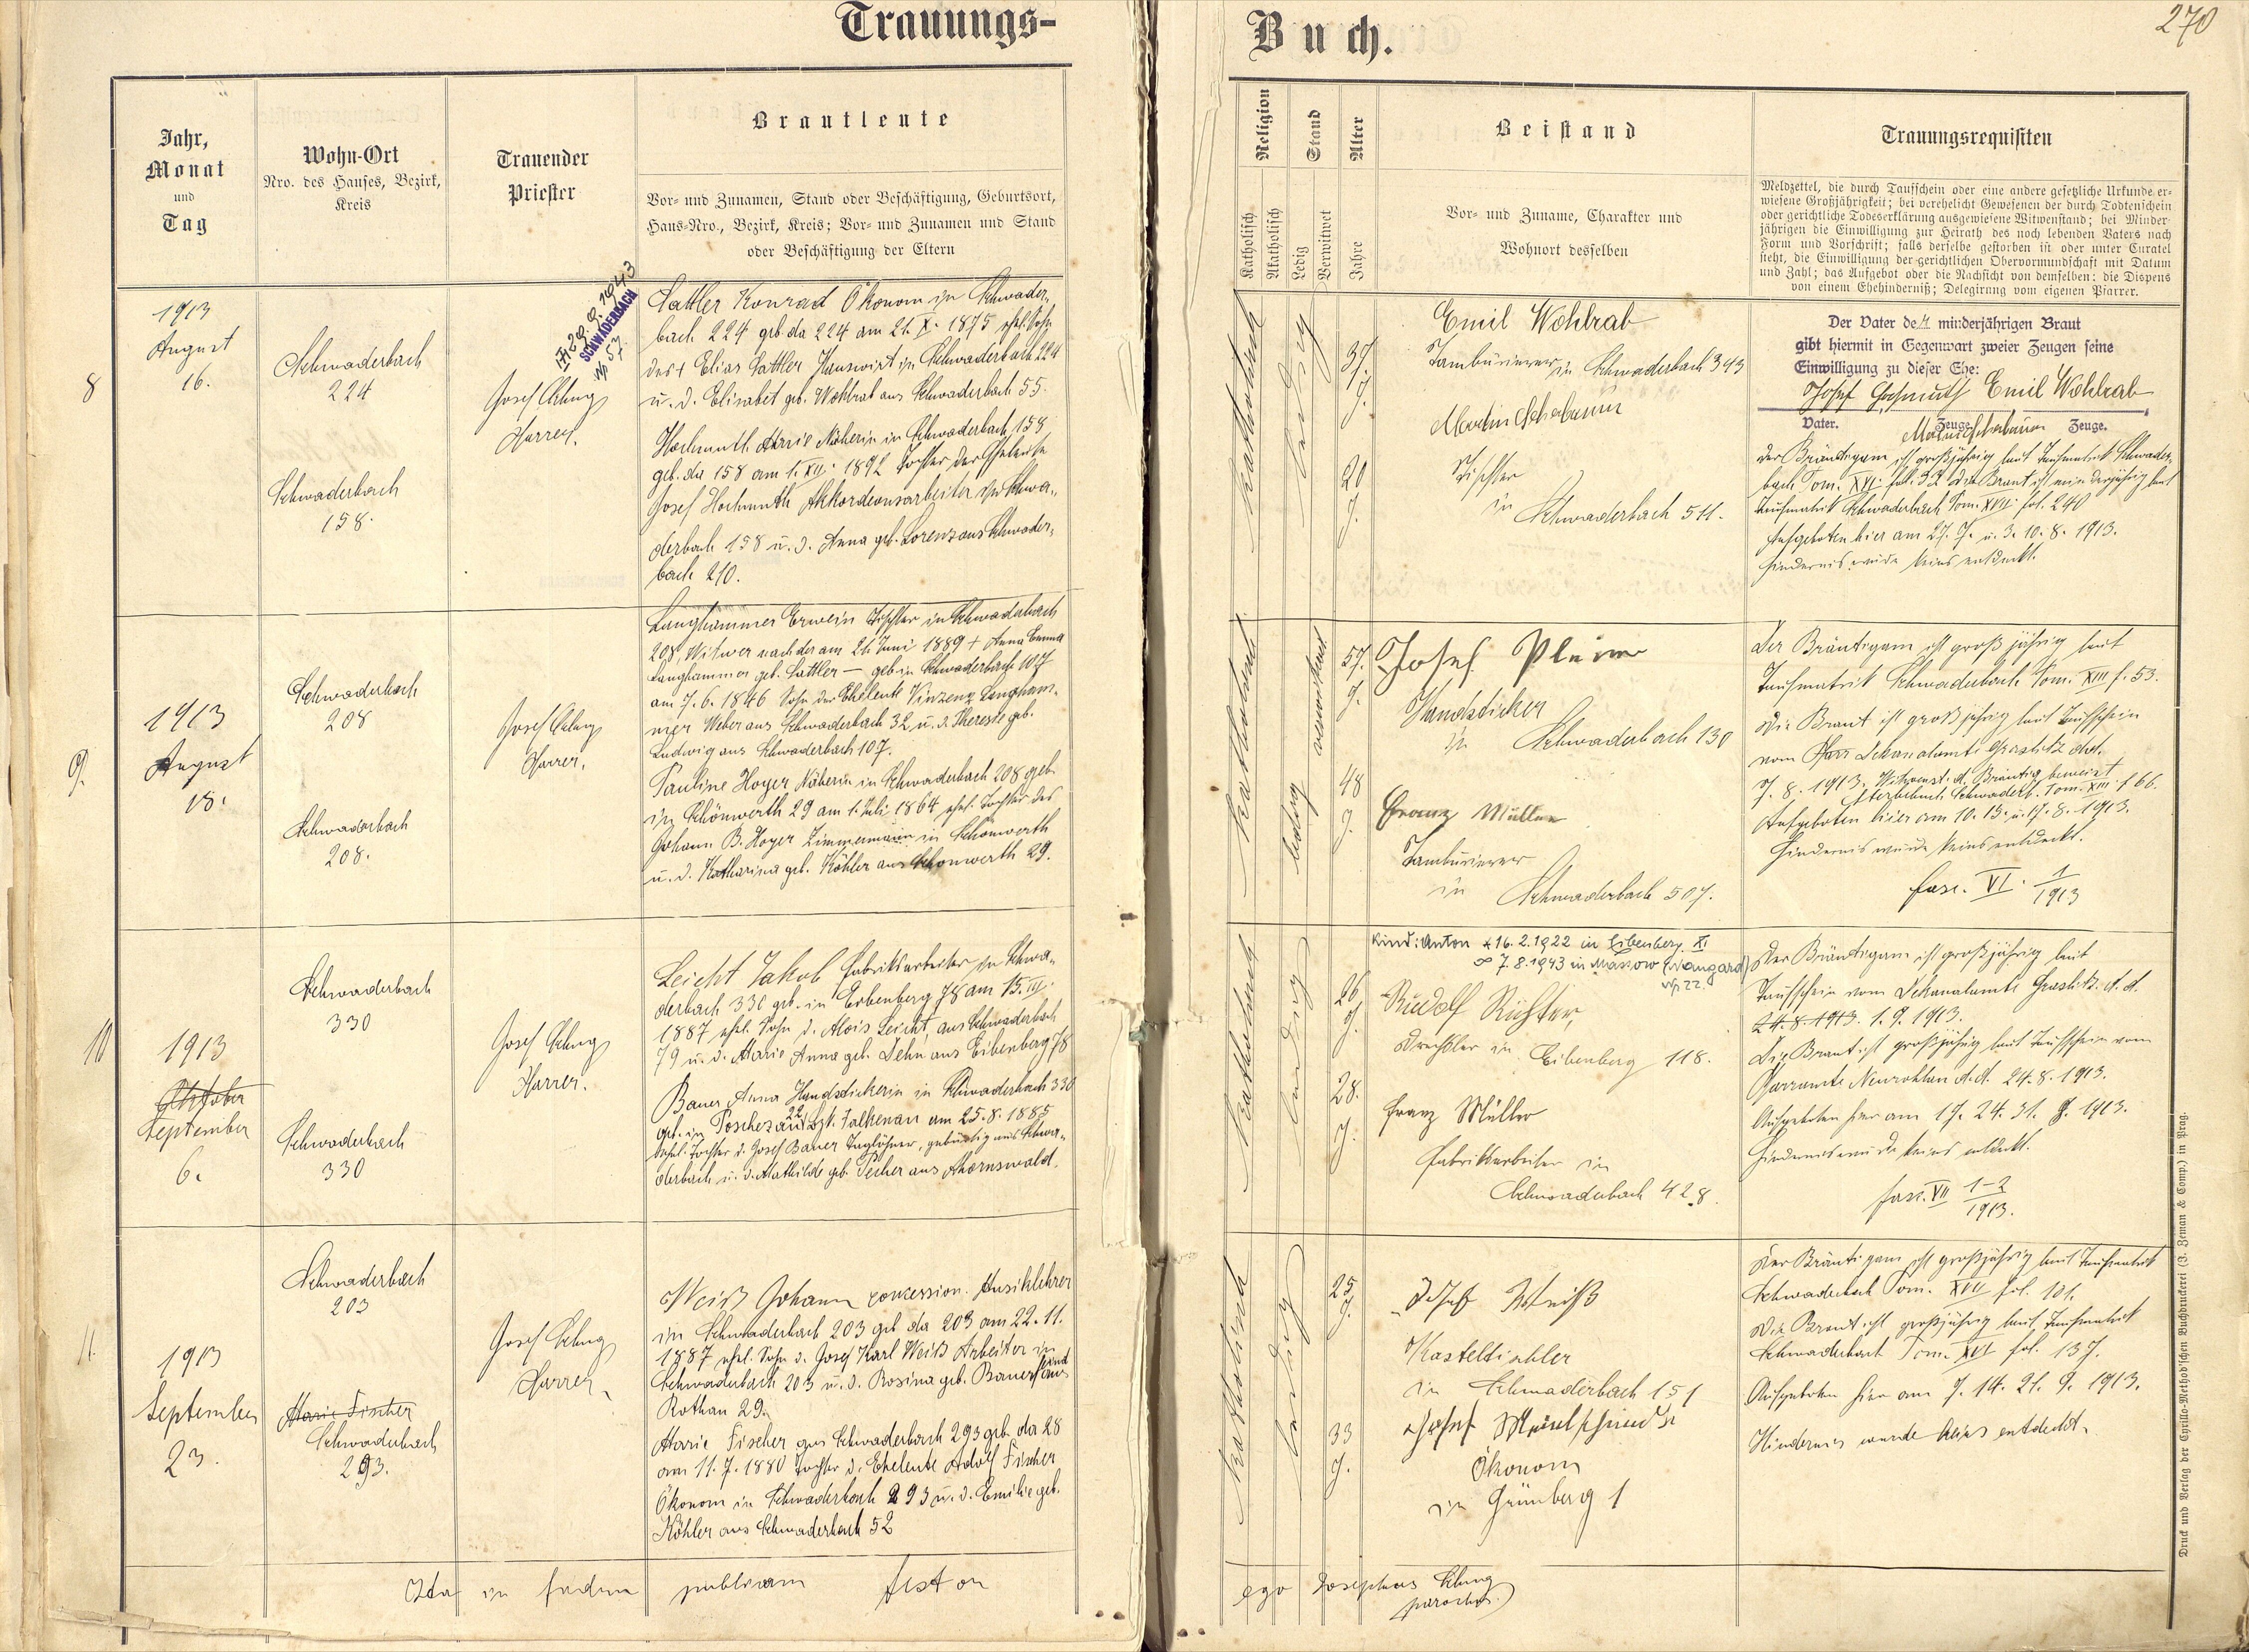 Trauungs-
Buch.
270
Jahr,
Monat
und
Tag
Wohn-Ort
Nro. des Hauses, Bezirk,
Kreis
Trauender
Priester
Brautleute
Vor- und Zunamen, Stand oder Beschäftigung, Geburtsort,
Haus-Nro., Bezirk, Kreis; Vor- und Zunamen und Stand
oder Beschäftigung der Eltern
Religion
Katholisch
Akatholisch
Stand
Ledig
Verwitwet
Alter
Jahre
Beistand
Vor- und Zuname, Charakter und
Wohnort desselben
Trauungsrequisiten
Meldzettel, die durch Taufschein oder eine andere gesetzliche Urkunde er-
wiesene Großjährigkeit; bei verehelicht Gewesenen der durch Todtenschein
oder gerichtliche Todeserklärung ausgewiesene Witwenstand; bei Minder-
jährigen die Einwilligung zur Heirath des noch lebenden Vaters nach
Form und Vorschrift; falls derselbe gestorben ist oder unter Curatel
steht, die Einwilligung der gerichtlichen Obervormundschaft mit Datum
und Zahl; das Aufgebot oder die Nachsicht von demselben; die Dispens
von einem Ehehinderniß; Delegirung vom eigenen Pfarrer.
8
1913
August
16.
Schwaderbach
224
Schwaderbach
158.
SCHWADERBACH
Josef
Pfarrer.
Sattler Konrad Ökonom in Schwader-
bach 224 geb. da 224 am 21. X. 1875 ehel. Sohn
des + Elias Sattler Hauswirt in Schwaderbach 224
u. d. Elisabet geb. Wohlrab aus Schwaderbach 55.
Hochmuth Marie Näherin in Schwaderbach 158
geb. da 158 am 1. XII. 1892 Tochter der Eheleute
Josef Hochmuth Akkordeonsarbeiter in Schwa-
derbach 158 u. d. Anna geb. Lorenz aus Schwader-
bach 210.
katholisch
ledig
37
J.
20
J.
Emil Wohlrab
Tambourierer in Schwaderbach 343
Martin
Tischler
in Schwaderbach 511.
Der Vater der minderjährigen Braut
gibt hiermit in Gegenwart zweier Zeugen seine
Einwilligung zu dieser Ehe:
Josef Hochmuth Emil Wohlrab
Vater. Zeuge. Zeuge.
Der Bräutigam ist großjährig laut Taufmatrik Schwader-
bach Tom. XVI. fol. 32 Die Braut ist minderjährig laut
Taufmatrik Schwaderbach Tom. XVII fol. 240
Aufgeboten hier am 27. 7. u. 3. 10. 8. 1913.
Hindernis wurde keins entdeckt.
9.
1913
August
18.
Schwaderbach
208
Schwaderbach
208.
Josef
Pfarrer.
Langhammer Erwein Tischler in Schwaderbach
208, Witwer nach der am 21. Juni 1889 + Anna Emma
Langhammer geb. Sattler — geb. in Schwaderbach 107
am 7. 6. 1846 Sohn der Eheleute Vinzenz Langham-
mer Weber aus Schwaderbach 32 u. d. Theresie geb.
Ludwig aus Schwaderbach 107.
Pauline Hoyer Näherin in Schwaderbach 208 geb.
in Schönwerth 29 am 1. Juli 1864 ehel. Tochter des
Johann B. Hoyer Zimmermann in Schönwerth
u. d. Katharina geb. Köhler aus Schönwerth 29.
katholisch
verwitwet
ledig
57.
J.
48
J.
Josef
Handsticker
in Schwaderbach 130
Franz Müller
Tambourierer
in Schwaderbach 507.
Der Bräutigam ist großjährig laut
Taufmatrik Schwaderbach Tom. XIII f. 53.
Die Braut ist großjährig laut Taufschein
vom Pfarr Dekanalamte Graslitz dd.
7. 8. 1913. Witwenst. d. Bräutig. beweist
Sterbebuch Schwaderb. Tom. XIII f 66.
Aufgeboten hier am 10. 15. u. 17. 8. 1913.
Hindernis wurde keins entdeckt.
fasc. VI. 1/1913
10
1913
Oktober
September
6.
Schwaderbach
330
Schwaderbach
330
Josef
Pfarrer.
Leicht Jakob Fabriksarbeiter in Schwa-
derbach 330 geb. in Eibenberg 78 am 15. III.
1887 ehel. Sohn d. Alois Leicht, aus Schwaderbach
79 u. d. Marie Anna geb. Dehn aus Eibenberg 78
Bauer Anna Handstickerin in Schwaderbach 330
geb. in Poschezau 22 Bzk. Falkenau am 25. 8. 1885
ehel. Tochter d. Josef Bauer Taglöhner, gebürtig aus Schwa-
derbach u. d. Mathilde geb. Pecher aus Ahornswald.
katholisch
ledig
26
J.
28.
J.
Kind: Anton * 16. 2. 1922 in Eibenberg XI
∞ 7. 8. 1943 in Maskow (Naugard)
Np. 22.
Rudolf Richter,
Drechsler in Eibenberg 118.
Franz Müller
Fabriksarbeiter in
Schwaderbach 428.
Der Bräutigam ist großjährig laut
Taufschein vom Dekanalamte Graslitz d. d.
24. 8. 1913. 1. 9. 1913.
Die Braut ist großjährig laut Taufschein vom
Pfarramte Neurohlau d. d. 24. 8. 1913.
Aufgeboten hier am 17. 24. 31. 8. 1913.
Hindernis wurde keines entdeckt.
fasc. VII 1-2/1913.
11.
1913
September
23.
Schwaderbach
203
Marie Fischer
Schwaderbach
293.
Josef
Pfarrer
Weiß Johann concession. Musiklehrer
in Schwaderbach 203 geb. da 203 am 22. 11.
1887 ehel. Sohn d. Josef Karl Weiß Arbeiter in
Schwaderbach 203 u. d. Rosina geb. Bauerfeind aus
Rothau 29.
Marie Fischer aus Schwaderbach 293 geb. da 28
am 11. 7. 1880 Tochter d. Eheleute Adolf Fischer
Ökonom in Schwaderbach 293 u. d. Emilie geb.
Köhler aus Schwaderbach 52
katholisch
ledig
25
J.
33
J.
Josef Weiß
Kasteltischler
in Schwaderbach 151
Josef
Ökonom
in Grünberg 1
Der Bräutigam ist großjährig laut Taufmatrik
Schwaderbach Tom. XVII fol. 101.
Die Braut ist großjährig laut Taufmatrik
Schwaderbach Tom. XVI fol. 137.
Aufgeboten hier am 7. 14. 21. 9. 1913.
Hindernis wurde keins entdeckt.
Ita in fidem publicam testor
ego Josephus
parochus
Druck und Verlag der Cyrillo-Method'schen Buchdruckerei (J. Zeman & Comp.) in Prag.